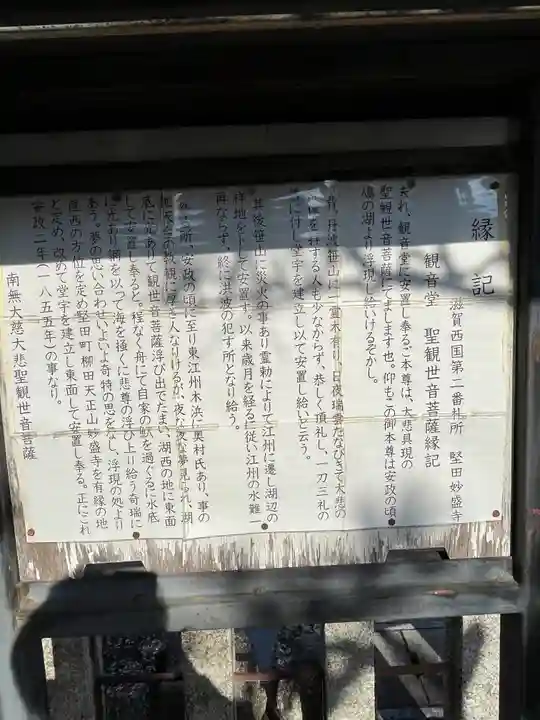 縁記
滋賀西国第二番札所　堅田妙盛寺
観音堂　聖観世音菩薩縁記
夫れ、観音堂に安置し奉るご本尊は、大悲具現の
聖観世音菩薩にてまします也。仰もこの御本尊は安政の頃
湖より浮現し給いけるぞかし。
昔、丹波笹山に一霊木有り、日夜瑞雲たなびきて大悲の
を拝する人も少なからず、恭しく頂礼し、一刀三礼の
に付し堂宇を建立し以て安置し給いと云う。
其後笹山に災火の事あり霊勅によりて江州に遷し湖辺の
祥地を卜して安置す。以来歳月を経るに従い江州の水難一
再ならず。終に洪波の犯す所となり給う。
所、安政の頃に至り東江州木浜に奥村氏あり、事の
天台の教観に厚き人なりけるが、夜な夜な夢見られ、湖
底に光ありて観世音菩薩浮び出でたまい、湖西の地に東面
して安置し奉ると。程なく舟にて自家の魞を過ぐるに水底
に光あり網を以って海を掻くに悲尊の浮び上り給う奇瑞に
奉う。夢の思い合わせいよいよ奇特の思をなし、浮現の処より
直西の方位を定め堅田町柳田天正山妙盛寺を有縁の地
と定め、改めて堂宇を建立し東面して安置し奉る。正にこれ
安政二年（一八五五年）の事なり。
南無大慈大悲聖観世音菩薩